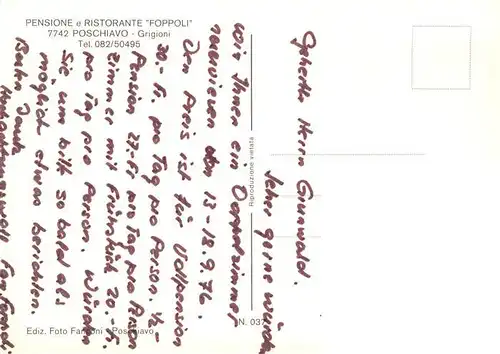 PENSIONE e RISTORANTE "FOPPOLI"
7742 POSCHIAVO - Grigioni
Tel. 082/50495
Geehrte Herrn Grunwald.
Sehr gerne würden
wir Ihnen ein Doppelzimmer
reservieren vom 13-18.9.76.
Der Preis ist für Vollpension
30.- Fr. pro Tag pro Person. ½-
Pension 27.- Fr. pro Tag pro Person
Zimmer mit Frühstück 20.- Fr.
pro Tag pro Person. Würden
Sie uns bitte so bald als
möglich etwas berichten.
Besten Dank
Riproduzione vietata
N. 037
Ediz. Foto Fanconi - Poschiavo